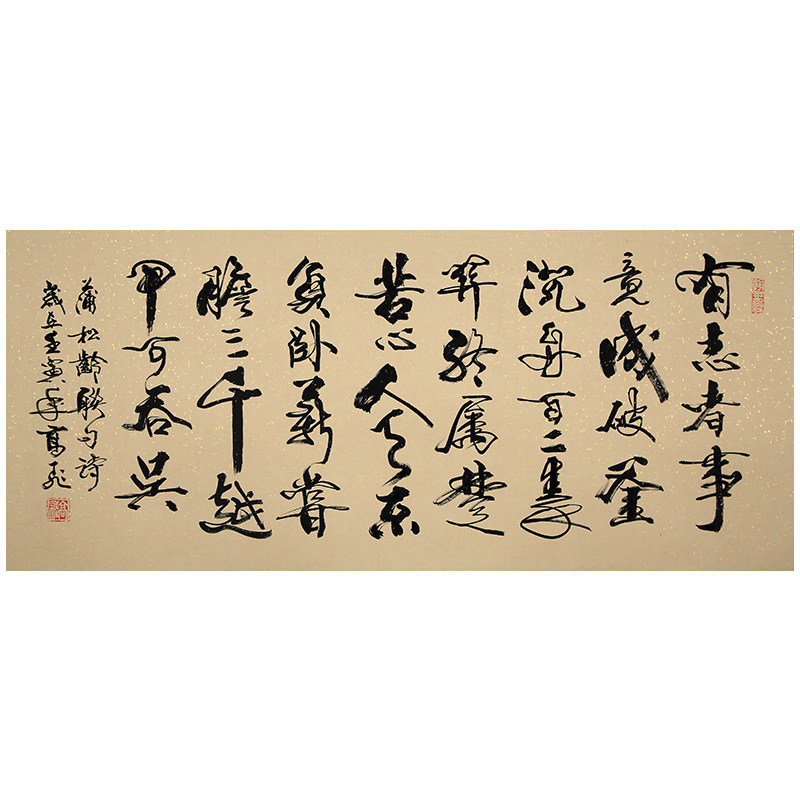 有志者事
竟成破釜
沉舟百二秦
関终属楚
苦心人天不
負卧薪嘗
膽三千越
甲可吞吴
蒲松齡联句詩
歲在壬寅年